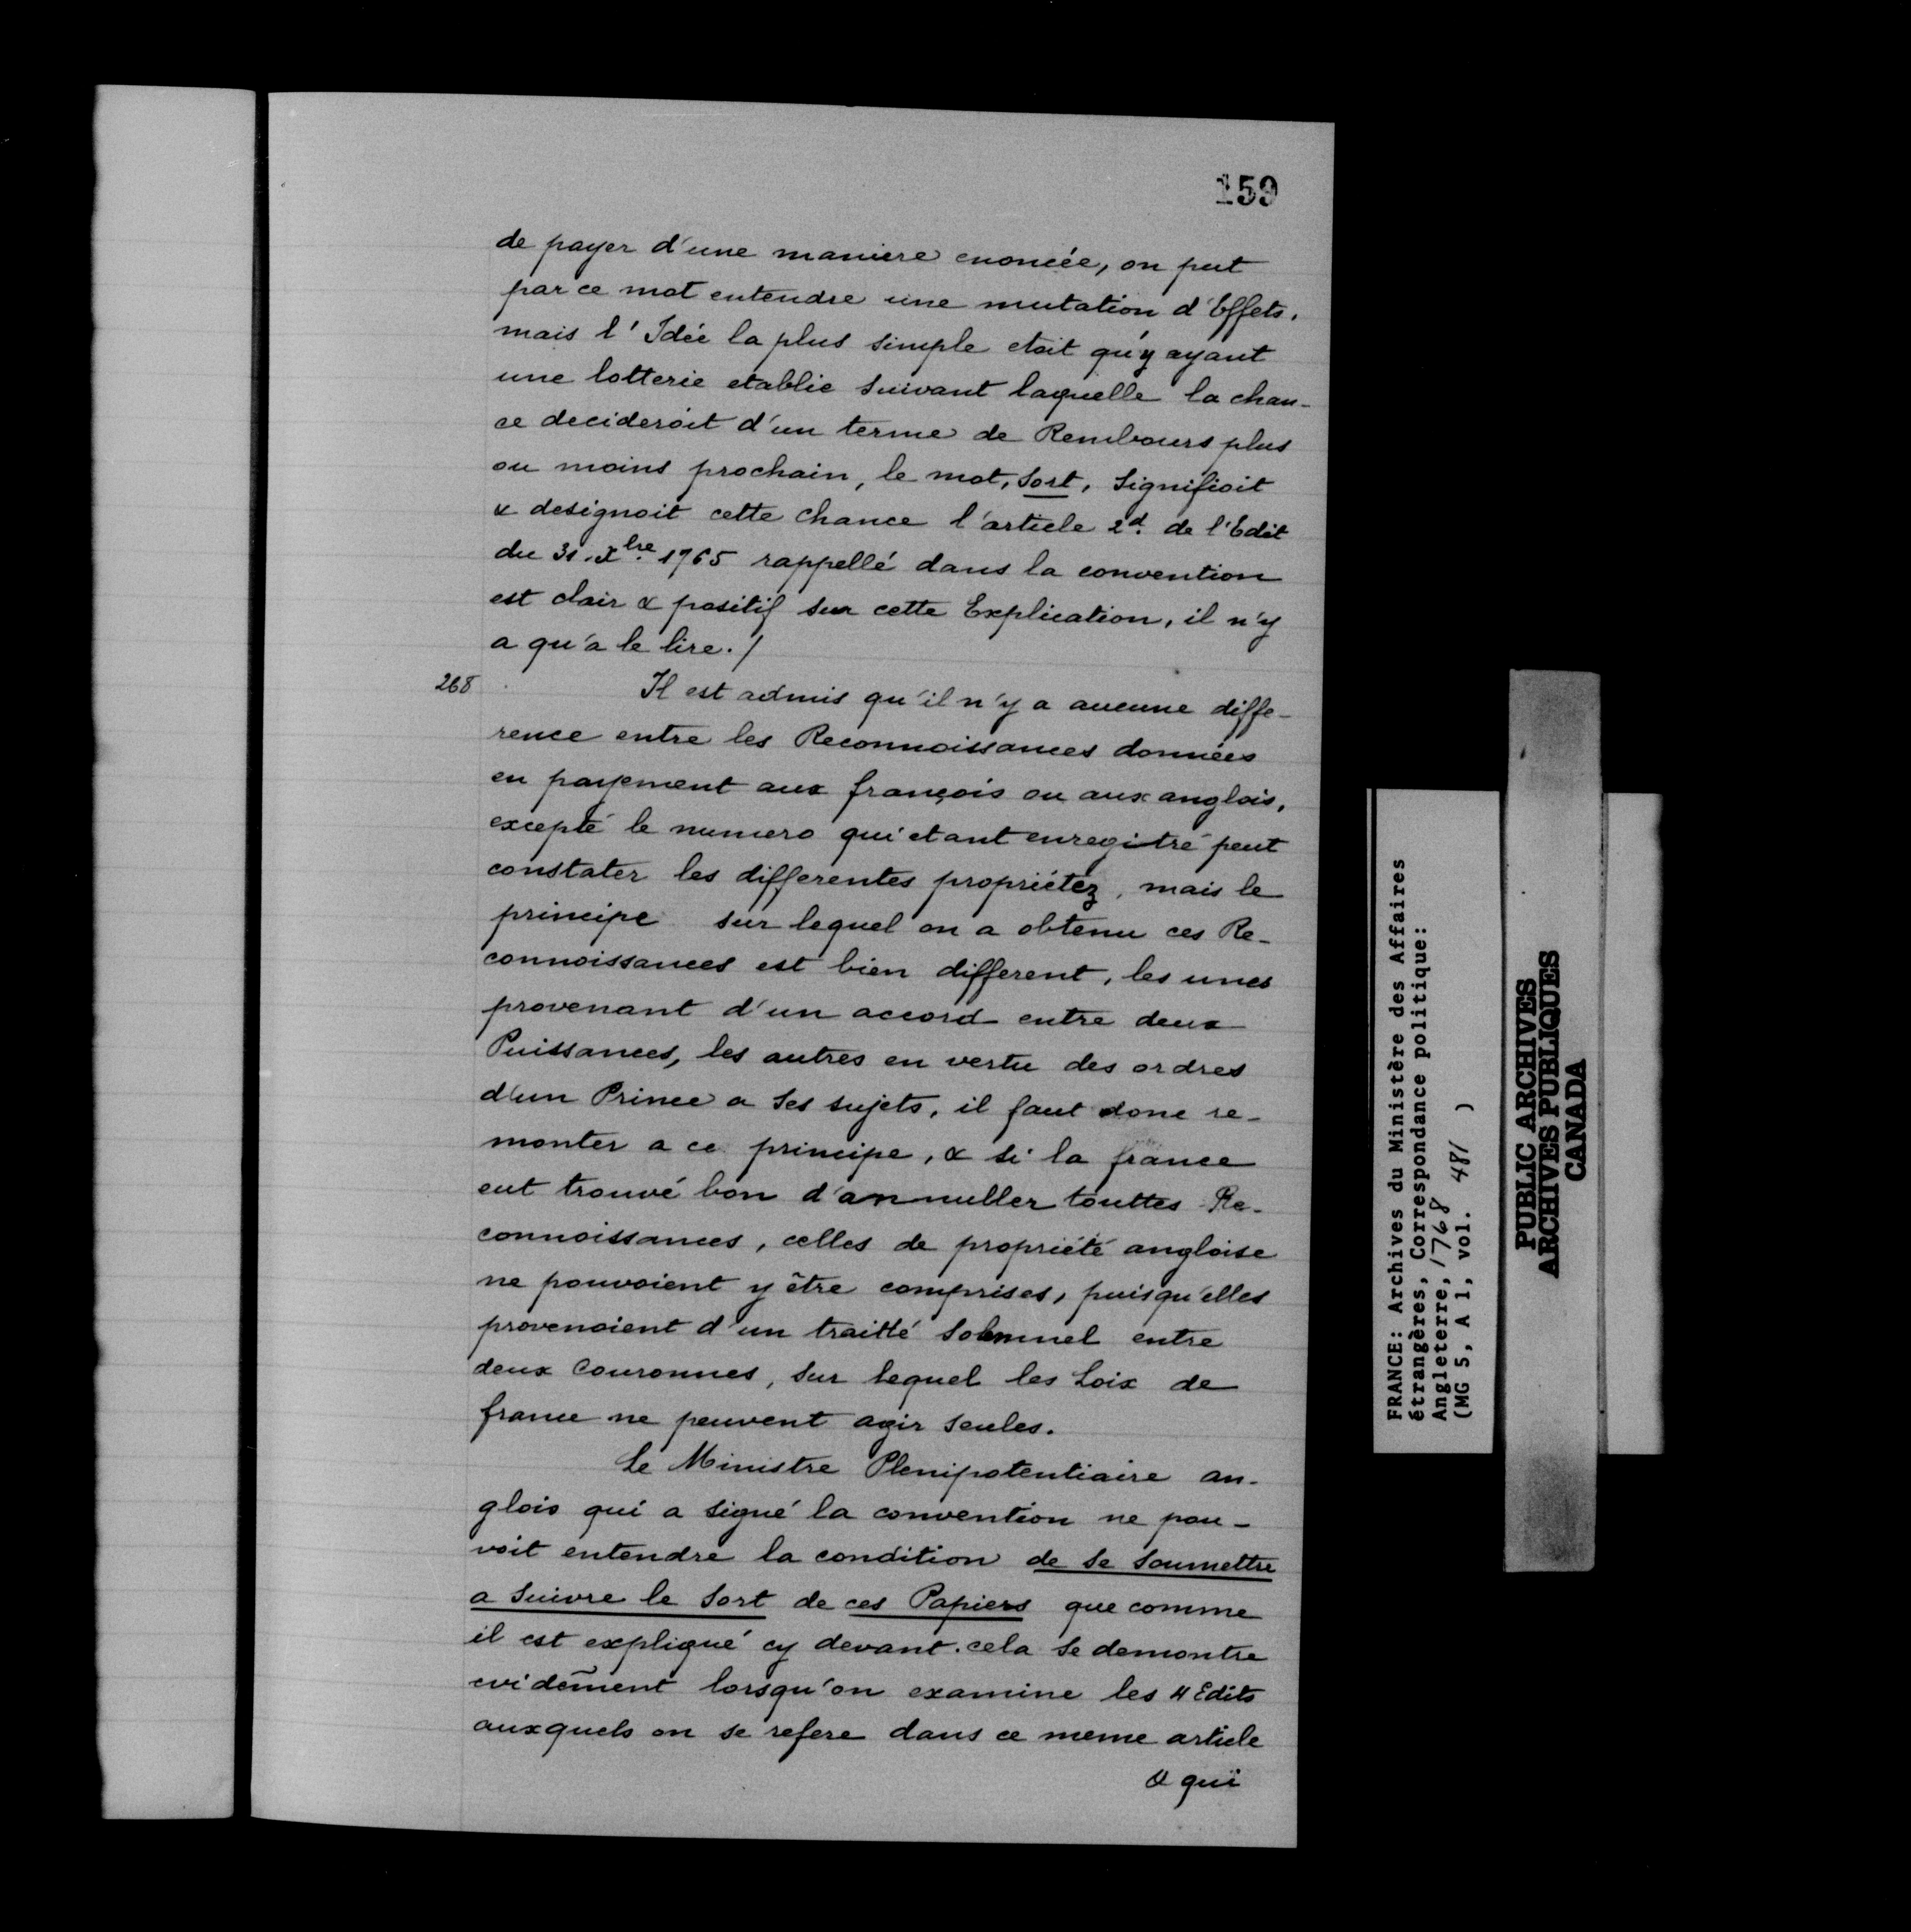 159
de payer d'une maniere enoncée, on peut
par ce mot entendre une mutation d'Effets.
mais l'Idée la plus simple etoit qu'y ayant
une lotterie etablie suivant laquelle la chan-
ce decideroit d'un terme de Rembours plus
ou moins prochain, le mot, sort, signifioit
& designoit cette chance l'article 2d. de l'Edit
du 31. Xbre. 1765 rappellé dans la convention
est clair & positif sur cette Explication, il n'y
a qu'a le lire./
268
Il est admis qu'il n'y a aucune diffe-
rence entre les Reconnoissances données
en payement aux françois ou aux anglois,
excepté le numero qui etant enregitré peut
constater les differentes propriétez, mais le
principe sur lequel on a obtenu ces Re-
connoissances est bien different, les unes
provenant d'un accord entre deux
Puissances, les autres en vertu des ordres
d'un Prince a ses sujets, il faut donc re-
monter a ce principe, & si la france
eut trouvé bon d'annuller touttes Re-
connoissances, celles de propriété angloise
ne pouvoient y être comprises, puisqu'elles
provenoient d'un traitté solemnel entre
deux Couronnes, sur lequel les Loix de
france ne peuvent agir seules.
Le Ministre Plenipotentiaire an-
glois qui a signé la convention ne pou-
voit entendre la condition de se soumettre
a suivre le sort de ces Papiers que comme
il est expliqué cy devant. cela se demontre
evidem̃ent lorsqu'on examine les 4 Edits
auxquels on se refere dans ce meme article
& qui
FRANCE: Archives du Ministère des Affaires
étrangères, Correspondance politique:
Angleterre, 1768
(MG 5, A 1, vol. 481 )
PUBLIC ARCHIVES
ARCHIVES PUBLIQUES
CANADA